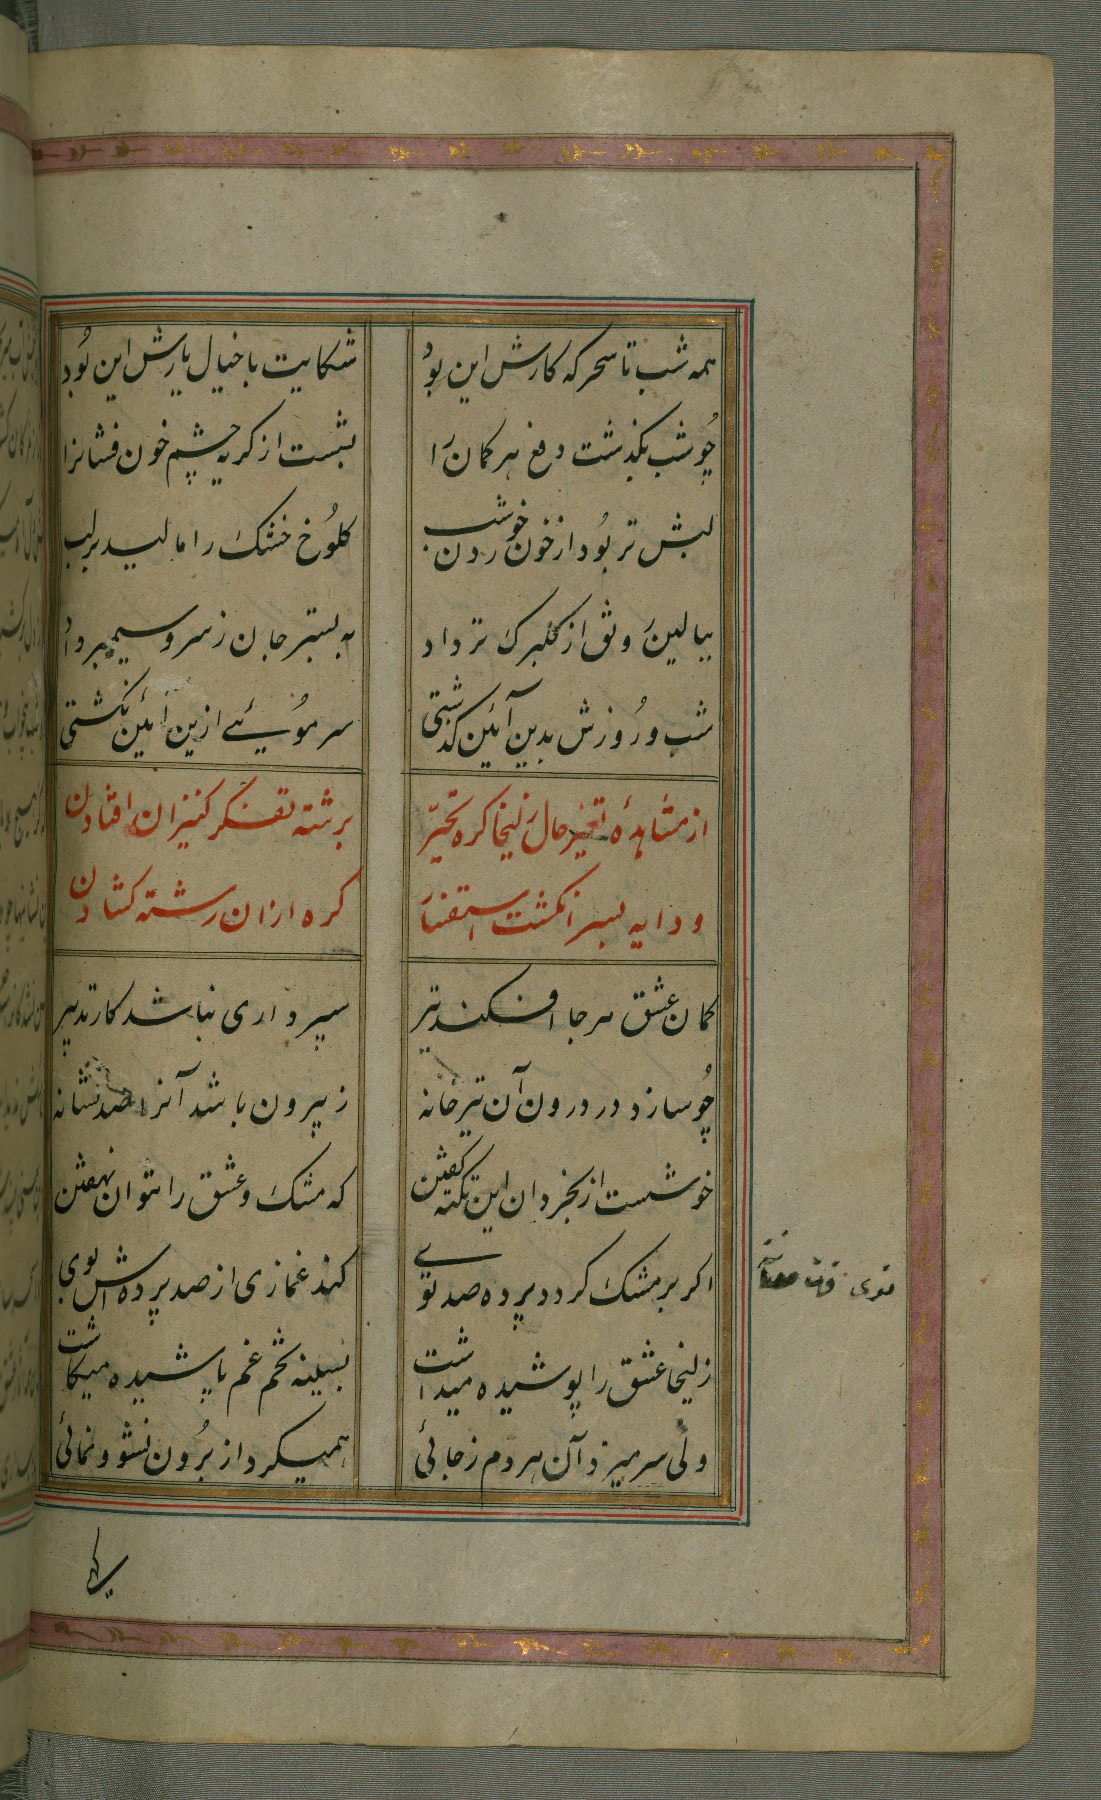 همه شب تا سحرکه کارش این بود
شکایت با خیال یارش این بود
چو شب بکذشت دفع هر کمان را
بشست از کریه چشم خون فشانرا
لبش تر بود از خون خوردن شب
کلوخ خشک را مالید بر لب
ببالین رونق از کلبرک تر داد
به بستر جان ز سرو سیمبر داد
شب و روزش بدین آئین کذشتی
سر موئی ازین آئین نکشتی
از مشاهدهٔ تغیر حال زلیخا کره تحیّر
بر شته تفکر کنیزان افتادن
و دایه بسر انکشت استفسار
کره ازان رشته کشادن
کمان عشق هر جا افکند تیر
سپر داری نباشد کار تدبیر
چو سازد در درون آن تیر خانه
ز بیرون باشد آنرا صد نشانه
خوشست از بخردان این نکته کفتن
که مشک و عشق را نتوان نهفتن
اکر بر مشک کردد پرده صد توی
کند غمازی از صد پرده اش بوی
زلیخا عشق را پوشیده میداشت
بسینه تخم غم پاشیده میکاشت
ولی سر میزد آن هر دم ز جائی
همیکرد از برون نشو و نمائی